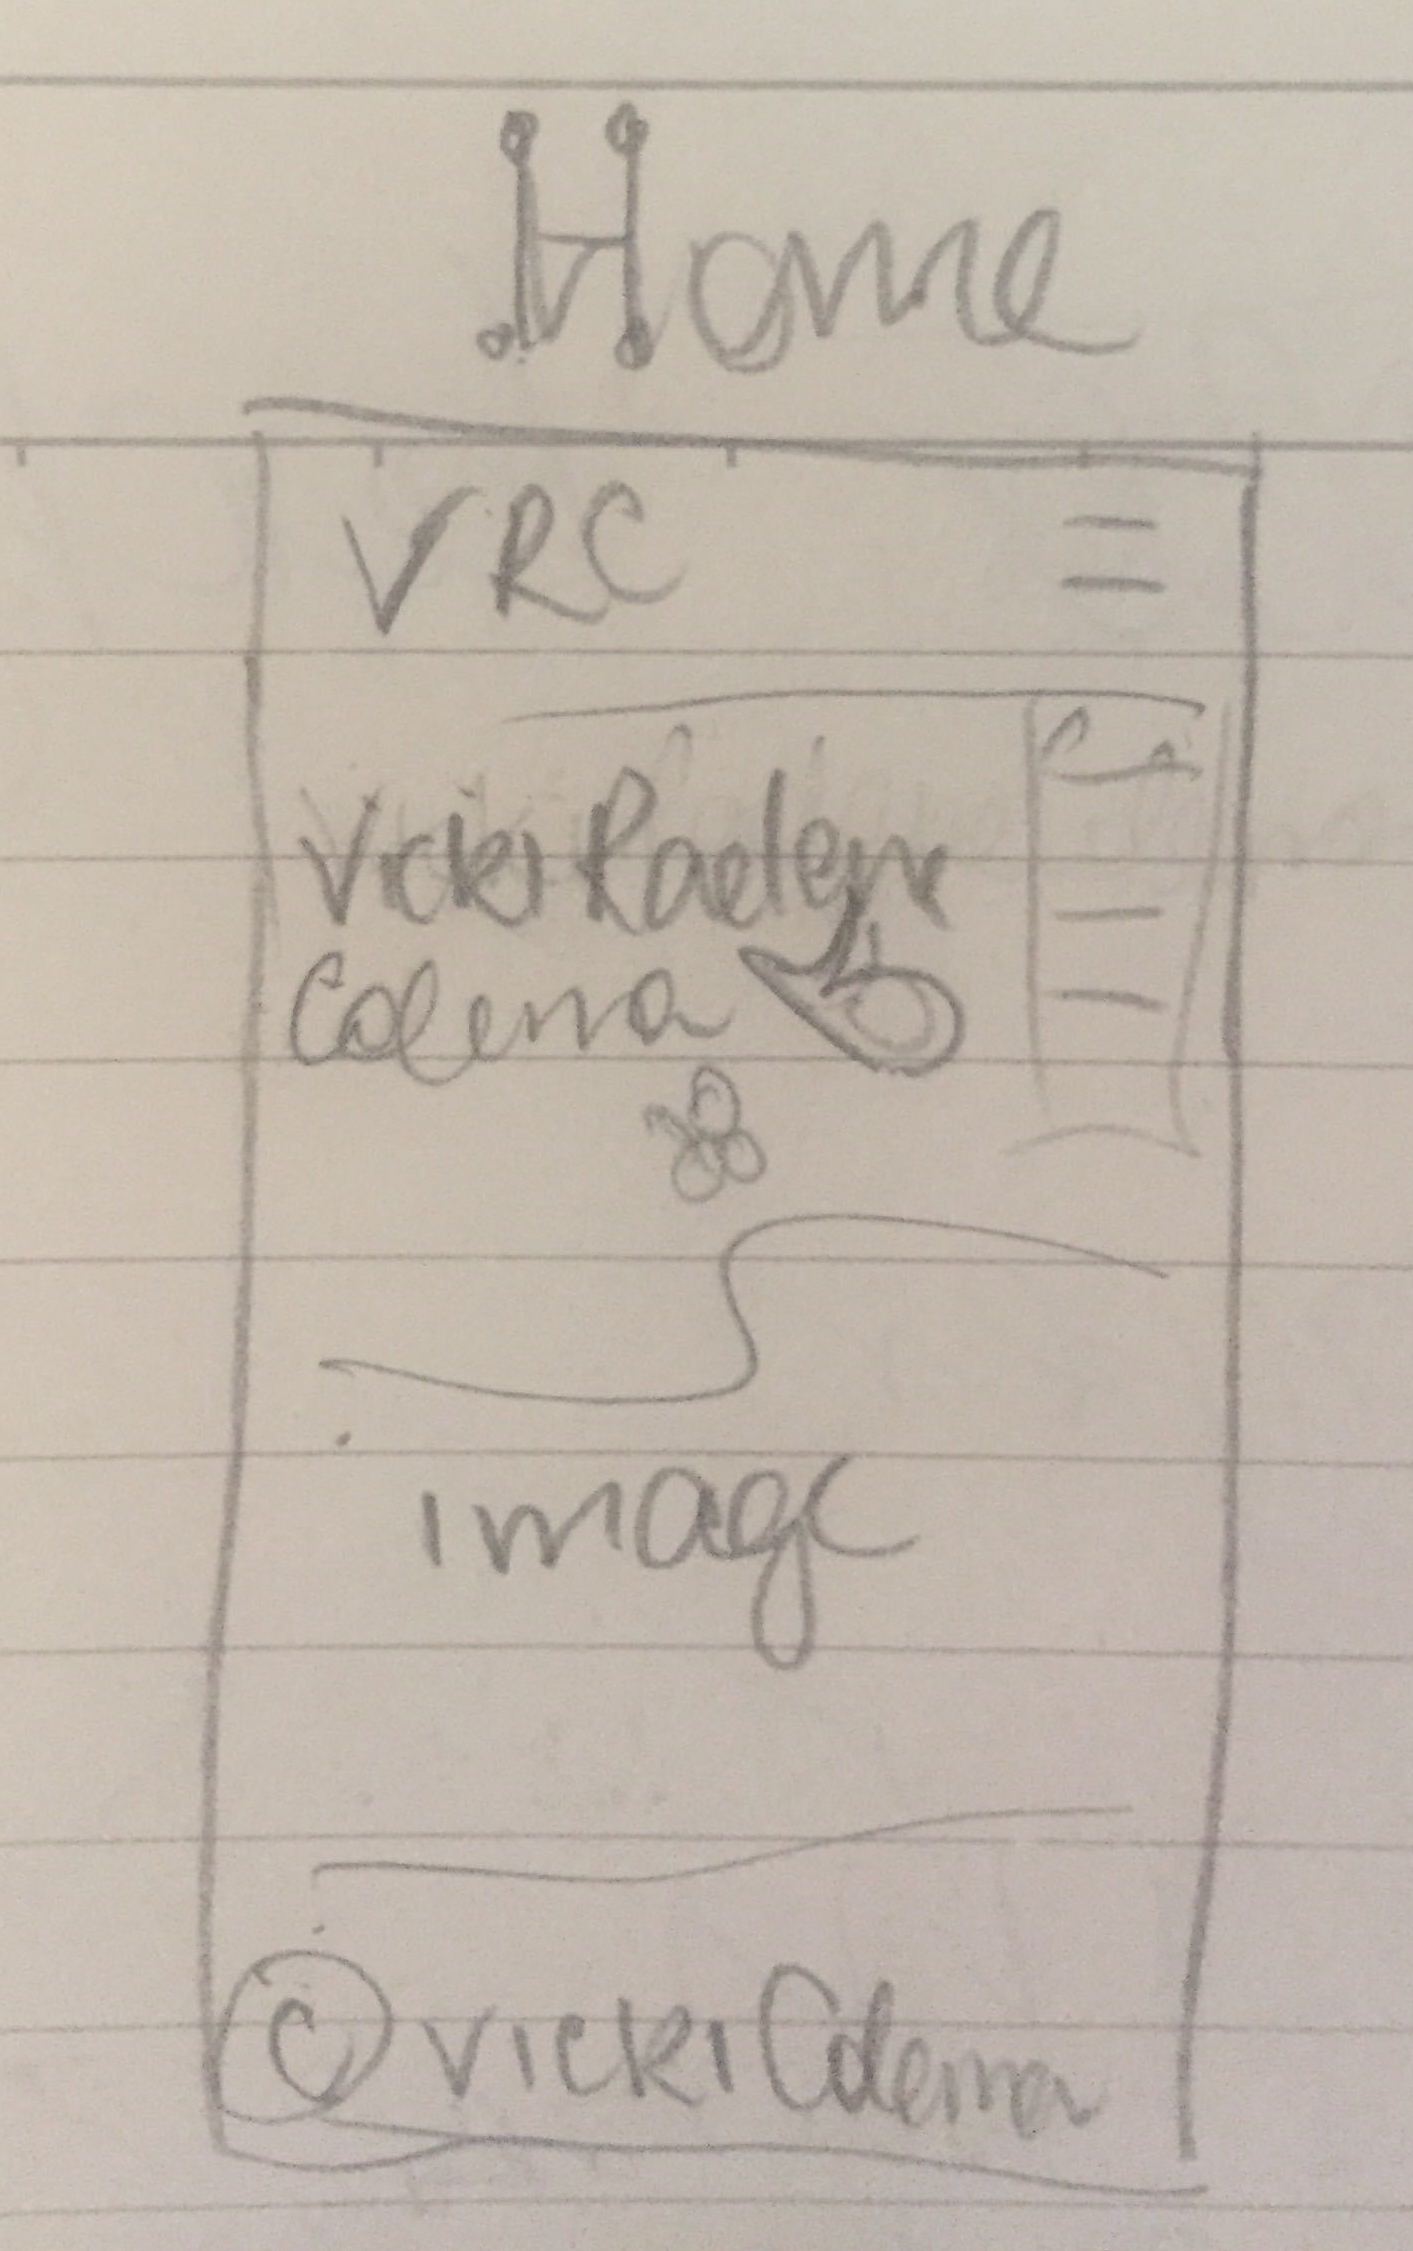 Home
VRC
Vicki Raelene
Colema
image
© Vicki Colema